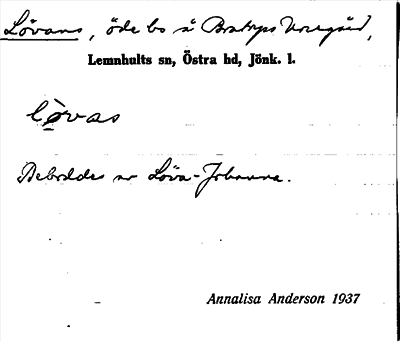 Lövans, öde bs å Bratryps Norrgård,
Lemnhults sn, Östra hd, Jönk. l.
lòvas
Bebyddes av Löva-Johanna.
Annalisa Anderson 1937